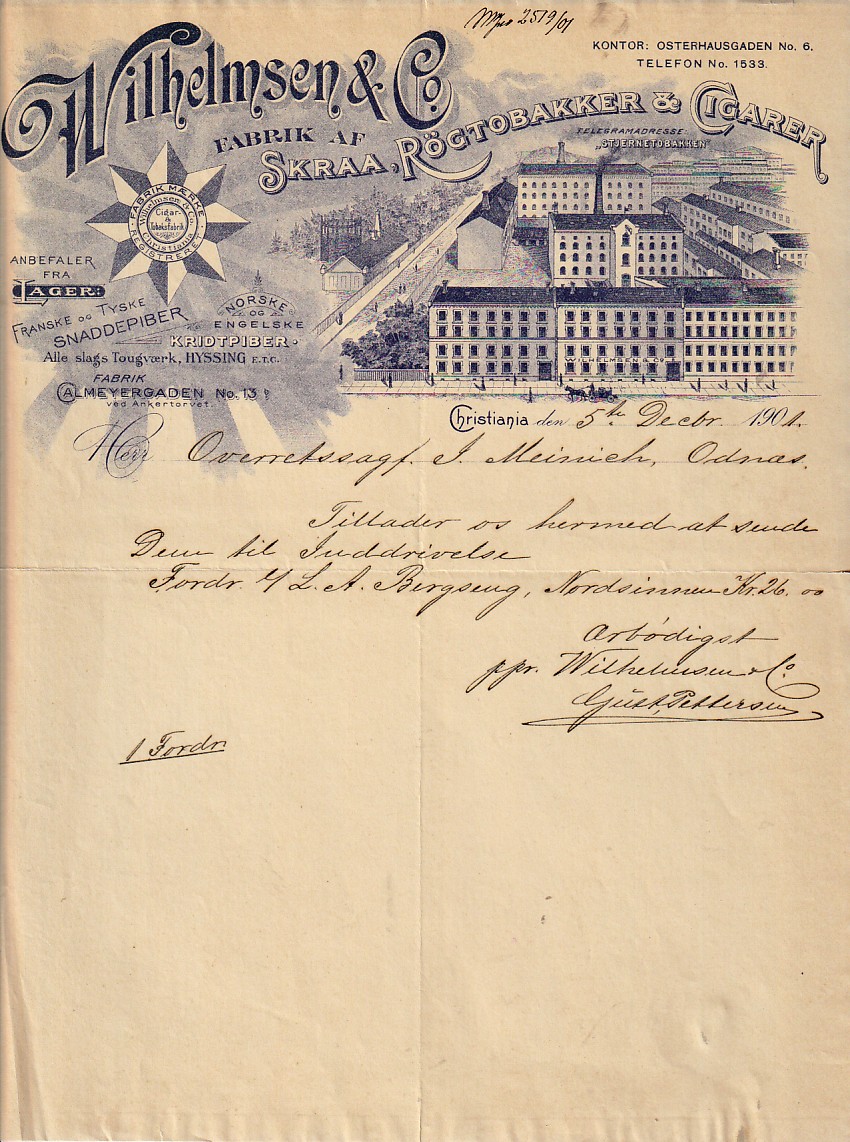 2519/01
KONTOR: OSTERHAUSGADEN No. 6.
TELEFON No. 1533.
Wilhelmsen & Co.
FABRIK AF
SKRAA, RÖGTOBAKKER & CIGARER
TELEGRAMADRESSE
„STJERNETOBAKKEN"
FABRIK MÆRKE
Wilhelmsen & Co.
Cigar-
&
Tobaksfabrik
Christiania
REGISTRERET
ANBEFALER
FRA
LAGER:
FRANSKE OG TYSKE
SNADDEPIBER
NORSKE
OG
ENGELSKE
KRIDTPIBER.
Alle slags Tougværk, HYSSING E.T.C.
FABRIK
CALMEYERGADEN No. 13
ved Ankertorvet.
WILHELMSEN & Co.
Christiania den 5te Decbr. 1901.
Herr Overretssagf. J. Meinich, Odnæs.
Tillader os hermed at sende
Dem til Inddrivelse
Fordr. L. A. Bergseng, Nordsinnen Kr. 26. 00
Ærbödigst
ppr. Wilhelmsen & Co.
Gust. Pettersen
1 Fordr.